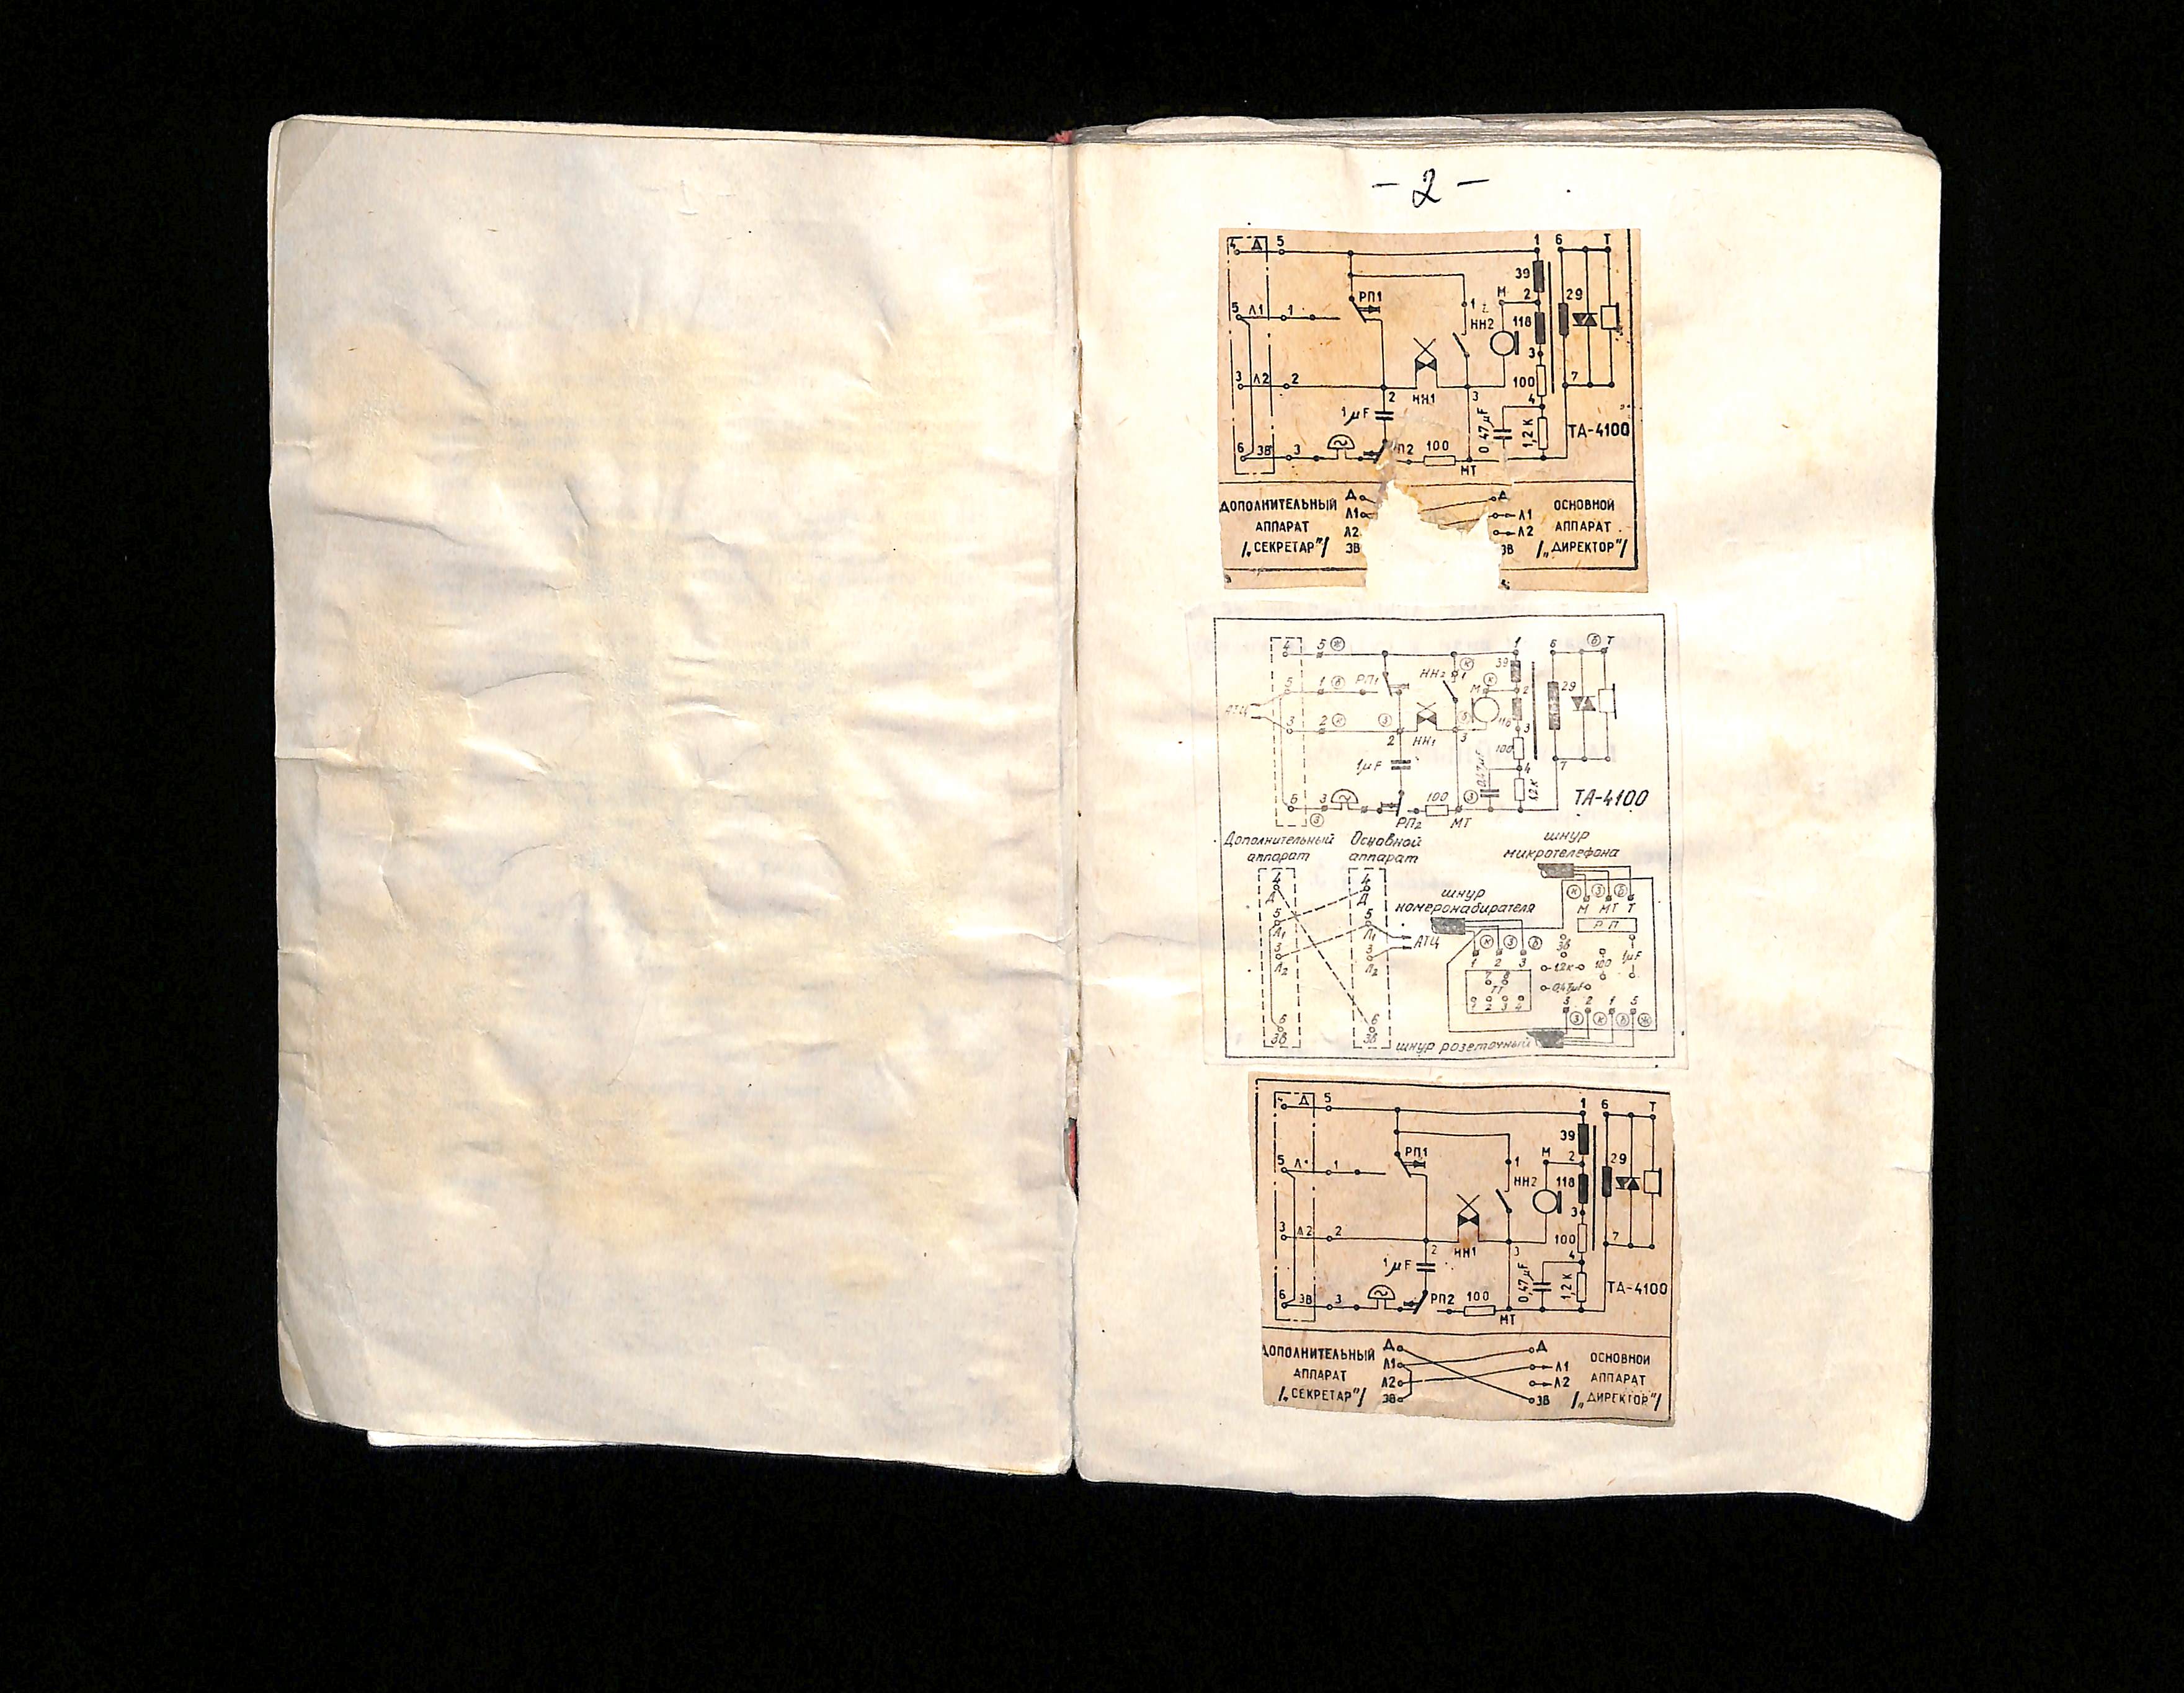 - 2 -
4 Д 5 1 6 Т
39
М 2 29
РП1
5 Л1 1 1
НН2 118
3
3 Л2 2 100 7
2 НН1 3 4
1 µF 0,47 µF 1,2 К ТА-4100
6 ЗВ 3 П2 100
МТ
ДОПОЛНИТЕЛЬНЫЙ Д Д ОСНОВНОЙ
АППАРАТ Л1 Л1 АППАРАТ
Л2 Л2
/„СЕКРЕТАР"/ ЗВ ЗВ /„ДИРЕКТОР"/
4 5 ж 1 6 б Т
39
к
5 1 б РП1 НН2 1 к
М 2 29
АТЦ
3 2 к з б 118 3
2 НН1 3 100
1µF 0,47µF 4 7
12к ТА-4100
6 3 100 з
з РП2 МТ
Дополнительный Основной шнур
аппарат аппарат микротелефона
4 4 к з б
Д Д шнур М МТ Т
5 5 номеронабирателя РП
Л1 Л1 АТЦ к з б ЗВ
3 3 1 2 3 12к 100 1µF
Л2 Л2 7 6 0,47µF
ТТ
1 2 3 4 3 2 1 5
6 6 з к б ж
ЗВ ЗВ шнур розеточный
4 Д 5 1 6 Т
39
РП1 М 2 29
5 Л 1 1
НН2 118
3
3 Л2 2 100 7
2 НН1 3 4
1 µF 0,47 µF 1,2 К ТА-4100
6 ЗВ 3 РП2 100
МТ
ДОПОЛНИТЕЛЬНЫЙ Д Д ОСНОВНОЙ
АППАРАТ Л1 Л1 АППАРАТ
Л2 Л2
/„СЕКРЕТАР"/ ЗВ ЗВ /„ДИРЕКТОР"/